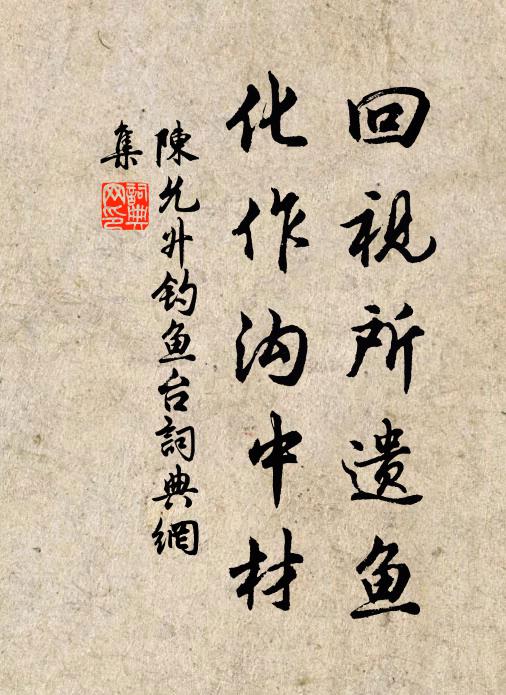 回视所遗鱼
化作沟中材
陳允升钓鱼台詞典網
集
詞典网印